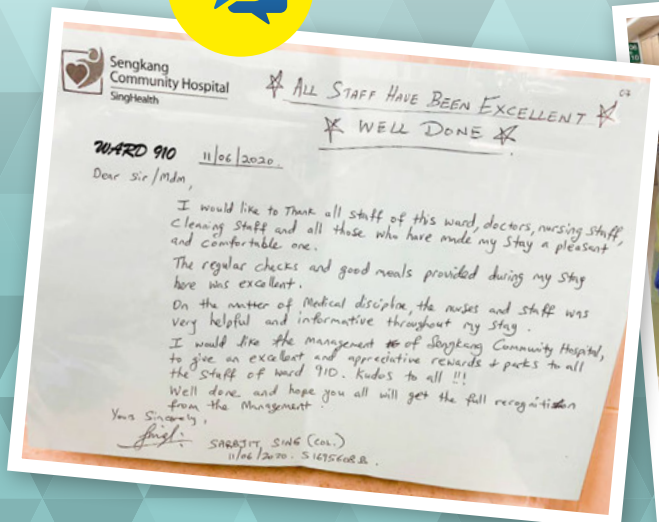 Sengkang
Community Hospital
SingHealth
ALL STAFF HAVE BEEN EXCELLENT
WELL DONE
WARD 910
11/06/2020.
Dear Sir/Mdm,
I would like to Thank all staff of this ward, doctors, nursing staff,
Cleaning Staff and all those who have made my Stay a pleasant
and comfortable one.
The regular checks and good meals provided during my Stay
here was excellent.
On the matter of Medical discipline, the nurses and staff was
very helpful and informative throughout my stay.
I would like the management of Sengkang Community Hospital,
to give an excellent and appreciative rewards + perks to all
the Staff of ward 910. Kudos to all !!!
Well done and hope you all will get the full recognition
from the Management.
Yours Sincerely,
SARBJIT SING (COL.)
11/06/2020.